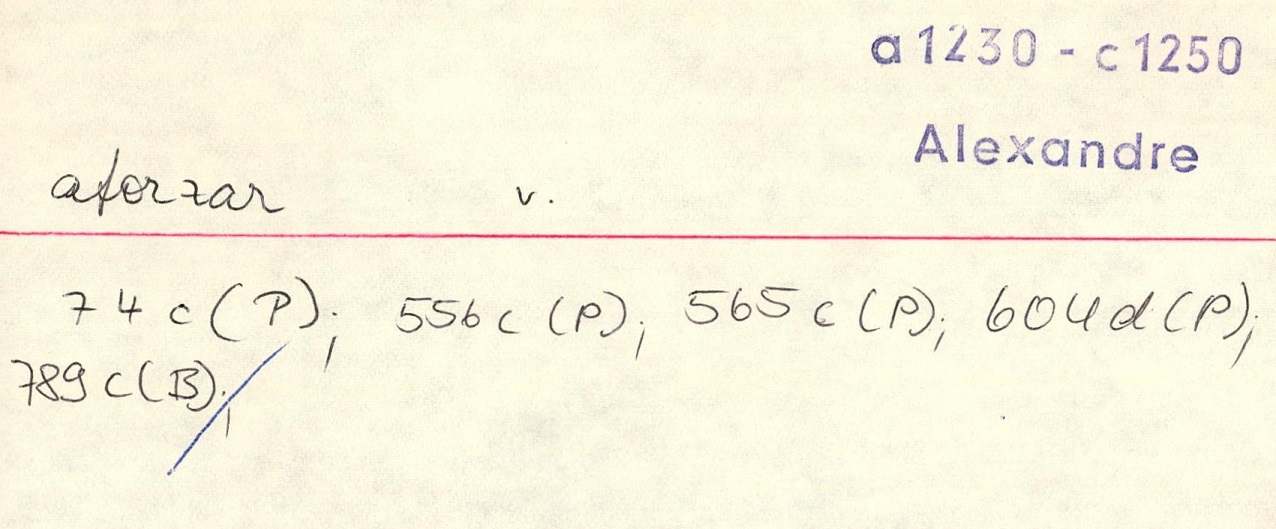 a 1230 - c 1250
Alexandre
aforzar v.
74 c (P); 556 c (P); 565 c (P); 604 d (P);
789 c (B);